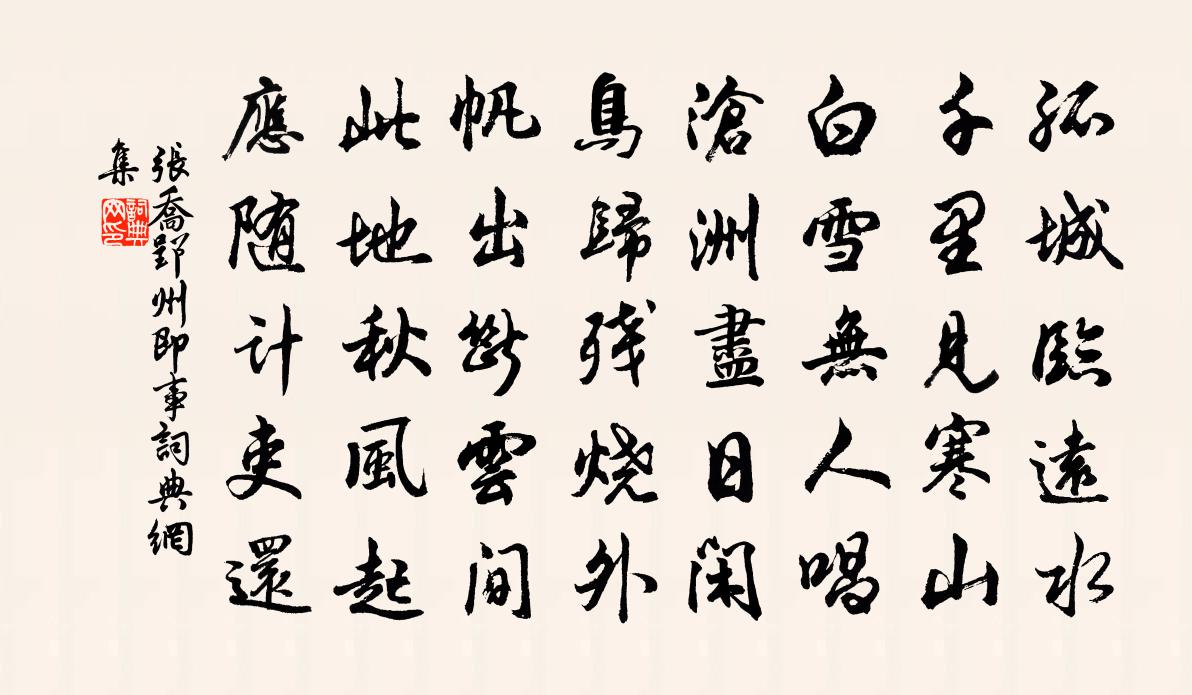 孤城臨遠水
千里見寒山
白雪無人唱
滄洲盡日閑
鳥歸殘燒外
帆出斷雲間
此地秋風起
應随計吏還
張喬郢州即事詞典網
集
詞典網印